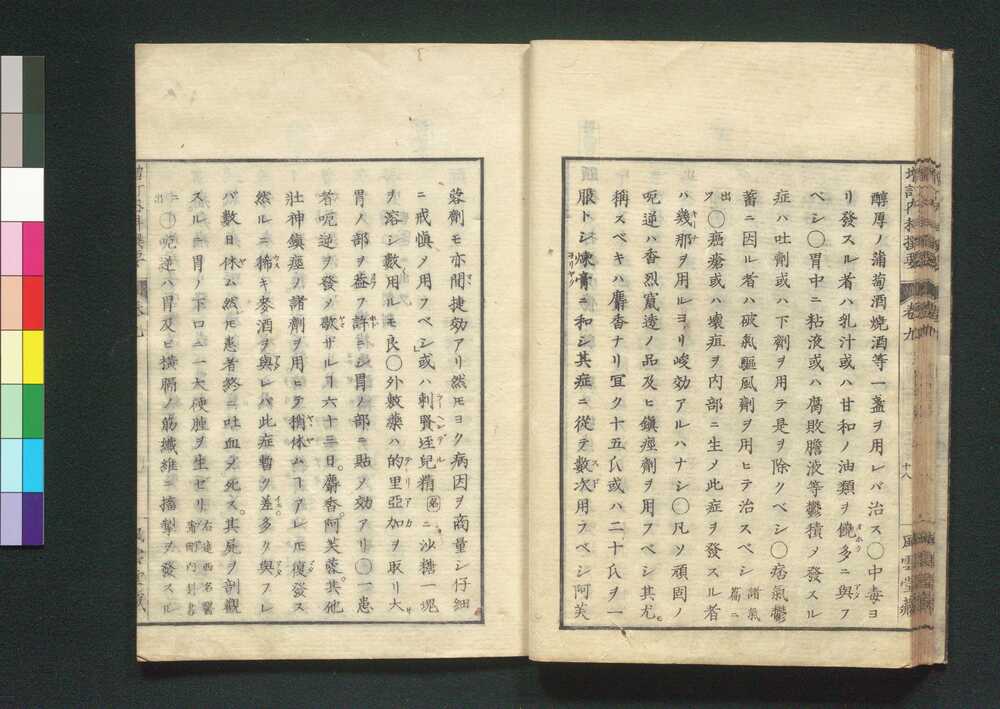 增訂内科撰要 卷九 十八 風雲堂藏
醇厚ノ葡萄酒燒酒等一盞ヲ用レバ治ス○中毒ヨ
リ發スル者ハ乳汁或ハ甘和ノ油類ヲ饒多ニ與フ
ベシ○胃中ニ粘液或ハ腐敗膽液等鬱積メ發スル
症ハ吐劑或ハ下劑ヲ用テ是ヲ除クベシ○痞氣鬱
蓄ニ因ル者ハ破氣驅風劑ヲ用ヒテ治スベシ諸氣篇ニ
出ヅ○癌瘡或ハ壞疽ヲ内部ニ生メ此症ヲ發スル者
ハ幾那ヲ用ルヨリ峻効アルハナシ○凡ソ頑固ノ
呃逆ハ香烈竄透ノ品及ヒ鎮痙劑ヲ用フベシ其尤モ
稱スベキハ麝香ナリ宜ク十五氏或ハ二十氏ヲ一
服トシ煉膏ニ和シ其症ニ從テ數次用フベシ阿芙
蓉劑モ亦間捷効アリ然モヨク病因ヲ商量シ仔細
ニ戒慎メ用フベシ或ハ刺賢垤兒精ニ沙糖一塊
ヲ溶シ數用ルモ良○外敷藥ハ的里亞加ヲ取リ大サ
胃ノ部ヲ葢フ許ニシ胃ノ部ニ貼メ効アリ○一患
者呃逆ヲ發メ歇ザルヿ六十三日。麝香。阿芙蓉。其他
壯神鎮痙ノ諸劑ヲ用ヒテ稍休ムヿアレモ復發ス
然ルニ稀キ麥酒ヲ與レバ此症暫ク差多ク與フレ
バ數日休ム然モ患者終ニ吐血メ死ス。其屍ヲ剖觀
スルニ胃ノ下口ニ一大硬腫ヲ生セリ
○呃逆ハ胃及ヒ横膈ノ筋纖維ニ搐掣ヲ發スル